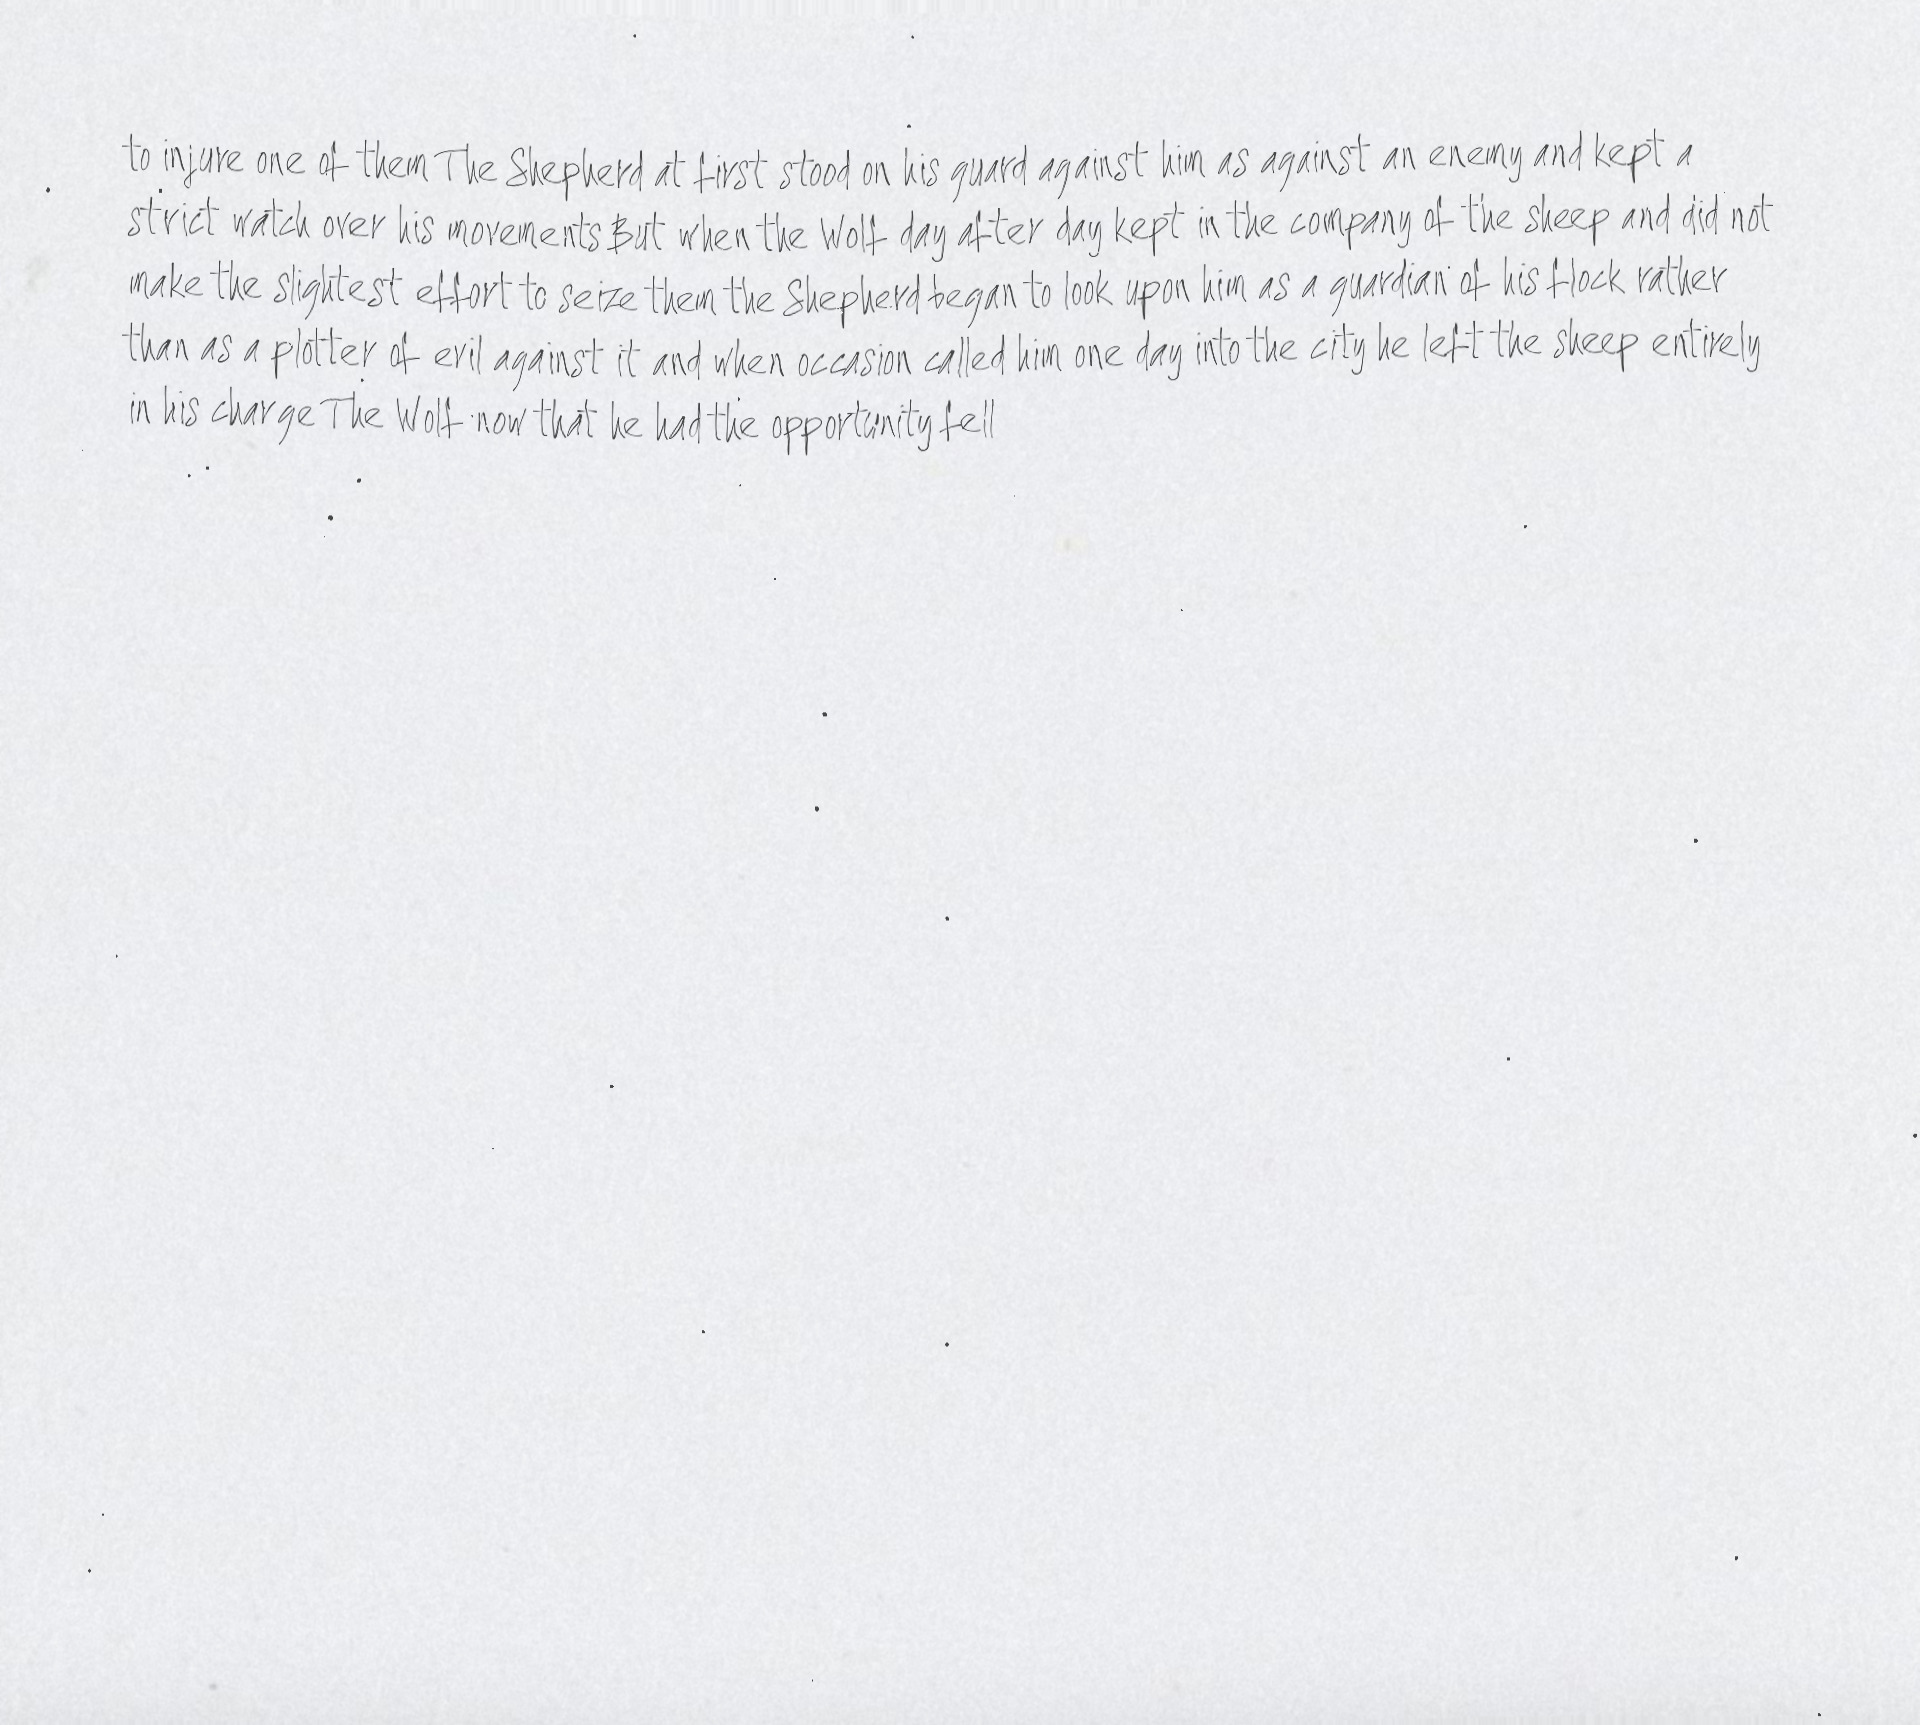 to injure one of them The Shepherd at first stood on his guard against him as against an enemy and kept a
strict watch over his movements But when the Wolf day after day kept in the company of the sheep and did not
make the slightest effort to seize them the Shepherd began to look upon him as a guardian of his flock rather
than as a plotter of evil against it and when occasion called him one day into the city he left the sheep entirely
in his charge The Wolf now that he had the opportunity fell